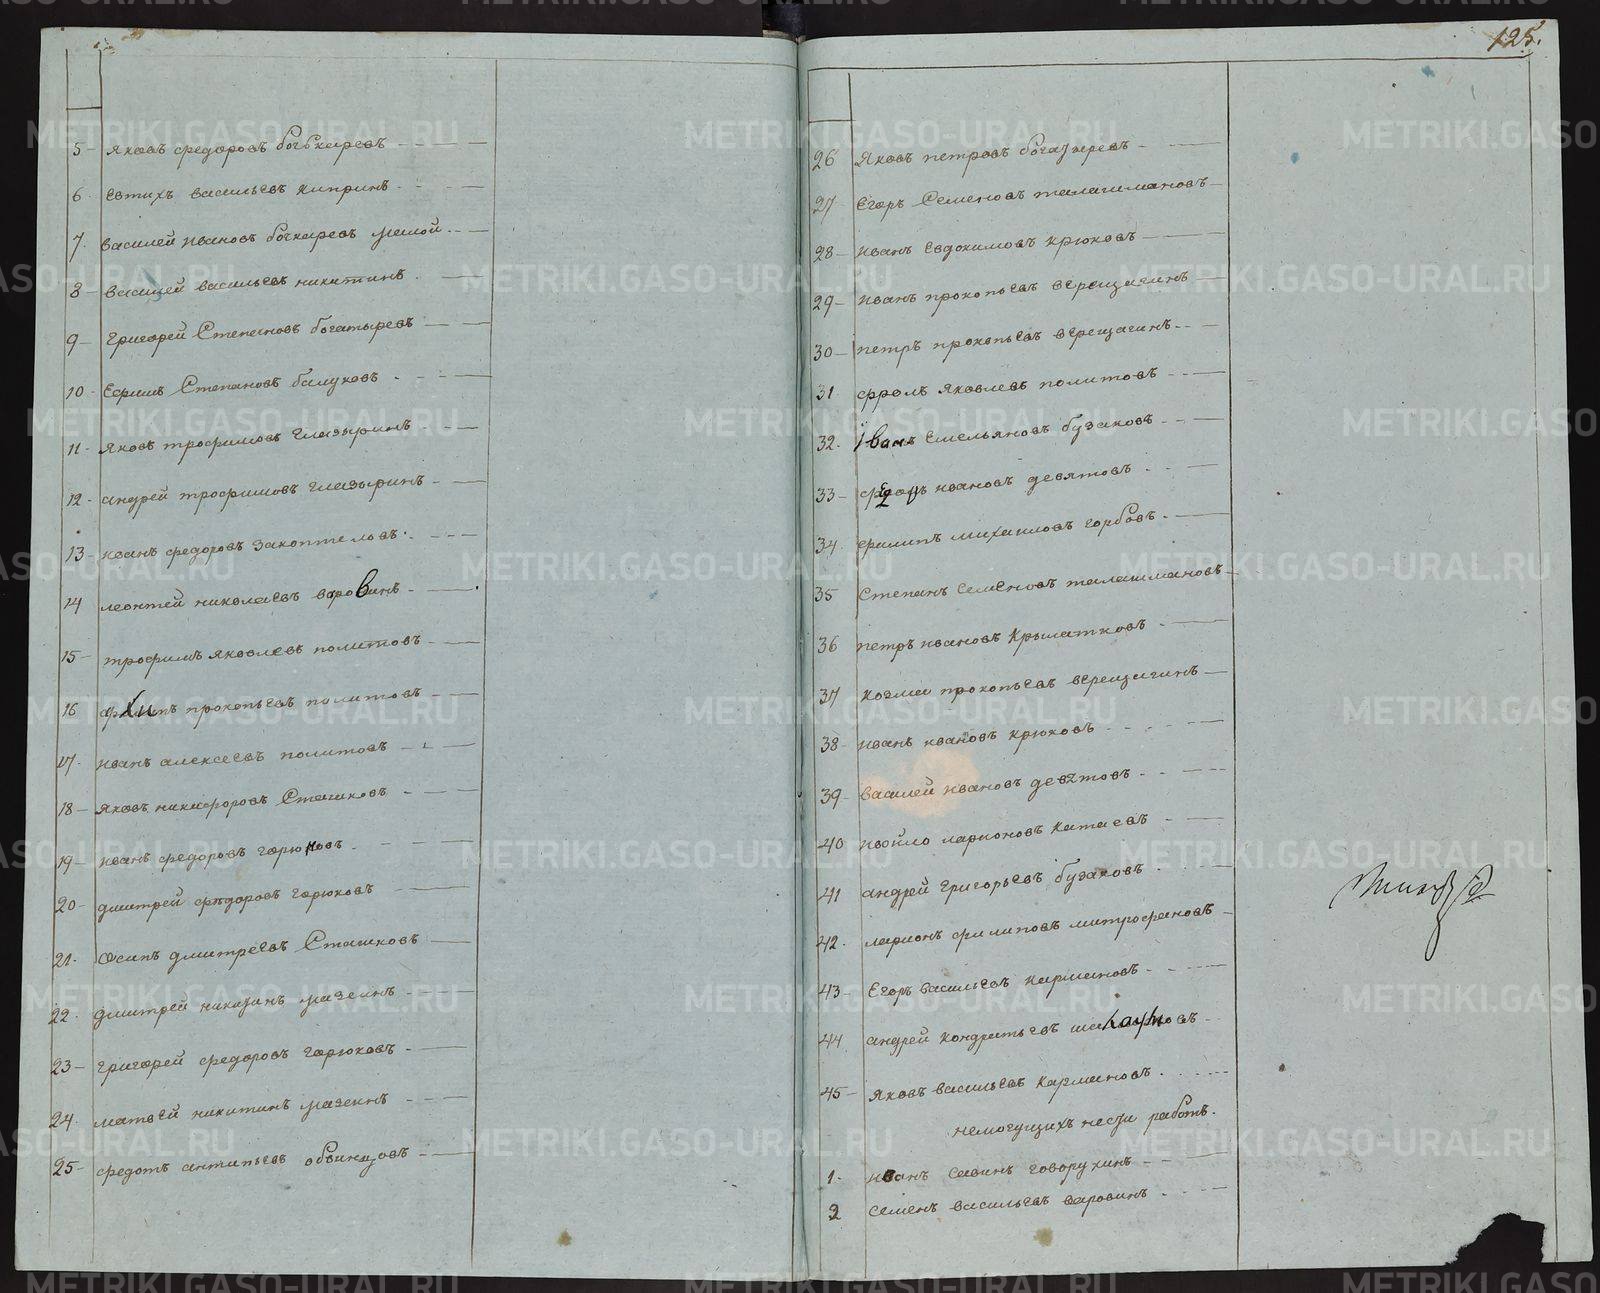 125.
5 Яковъ Федоровъ бочкаревъ
6 Евтихъ васильевъ киприн
7. василей ивановъ бочкаревъ малой
8 василей васильевъ никитинъ
9 григорей Степановъ богатыревъ
10 Ефимъ Степановъ балуковъ
11 яковъ трофимовъ глазыринъ
12 андрей трофимовъ глазыринъ
13 иванъ федоровъ закоптеловъ
14 леонтей николаевъ варовинъ
15 трофимъ яковлевъ политовъ
16 прокопьевъ политовъ
17. иванъ алексеевъ политовъ
18 яковъ никифоровъ Сташковъ
19 иванъ федоровъ горюновъ
20 дмитрей федоровъ горюховъ
21. Осипъ дмитреевъ Сташковъ
22. дмитрей мазеинъ
23 григорей федоровъ горюховъ
24. матвей никитинъ мазеинъ
25 федотъ антипьевъ обвинцовъ
26 Яковъ петровъ
27 Егоръ Семеновъ талашмановъ
28 иванъ Евдокимовъ крюковъ
29 иванъ прокопьевъ верещагинъ
30 петръ прокопьевъ верещагинъ
31 фролъ яковлевъ политовъ
32. Иванъ Емельяновъ бузаковъ
33 ивановъ девятовъ
34 филипъ михаиловъ горбовъ
35 Степанъ Семеновъ талашмановъ
36 петръ ивановъ крылатковъ
37 козма прокопьевъ верещагинъ
38 иванъ ивановъ крюковъ
39 василей ивановъ девятовъ
40 ларионовъ катаевъ
41 андрей григорьевъ бузаковъ
42. ларионъ филиповъ митрофановъ
43 Егоръ васильевъ кармановъ
44 андрей кондратьевъ
45 яковъ васильевъ кармановъ
немогущихъ работъ.
1. иванъ савинъ говорухинъ
2 семенъ васильевъ варовинъ
METRIKI.GASO-URAL.RU